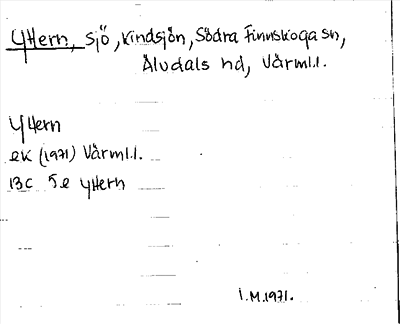 Yttern, sjö, Kindsjön, Södra Finnskoga sn,
Älvdals hd, Värml.l.
Yttern
ek (1971) Värml.l.
13C 5e Yttern
I.M.1971.